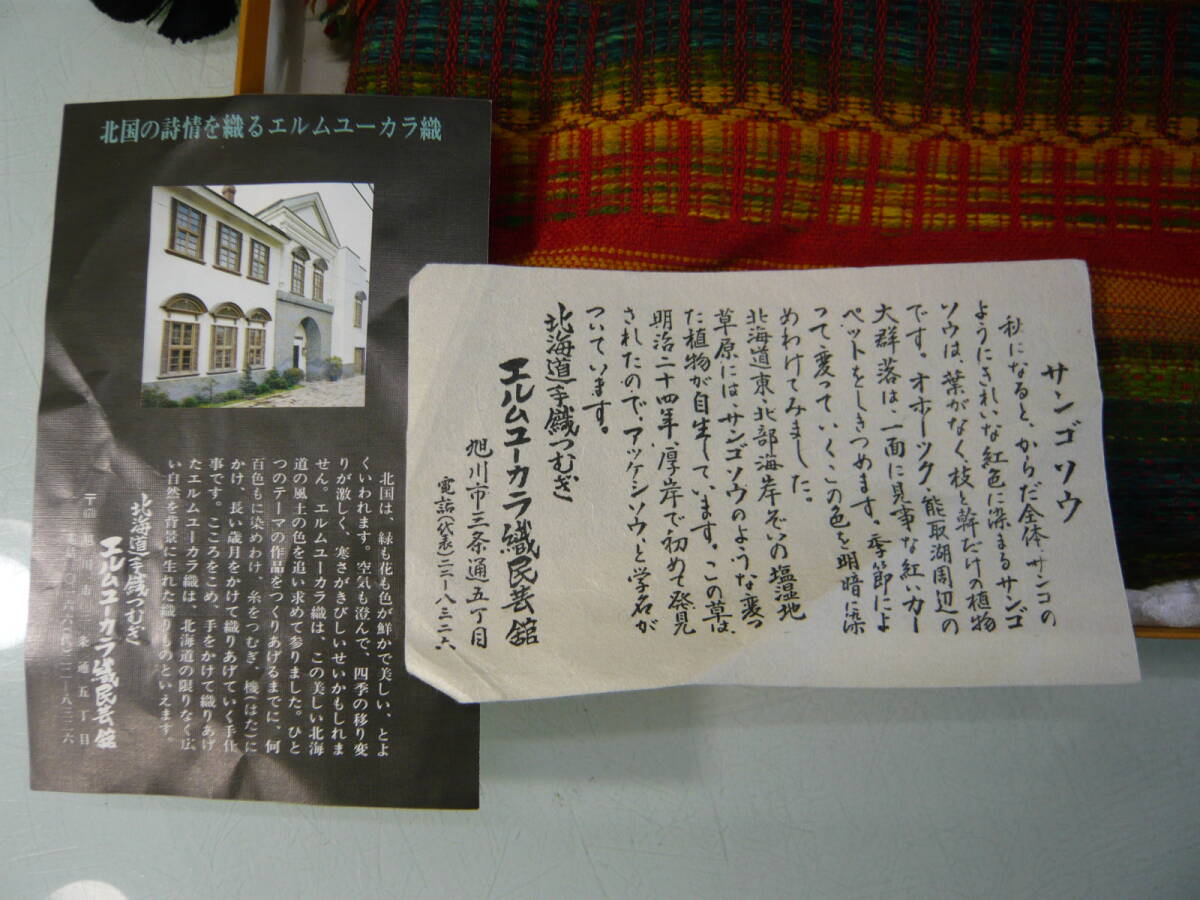 北国の詩情を織るエルムユーカラ織
北国は、緑も花も色が鮮かで美しい、とよ
くいわれます。空気も澄んで、四季の移り変
りが激しく、寒さがきびしいせいかもしれま
せん。エルムユーカラ織は、この美しい北海
道の風土の色を追い求めて参りました。ひと
つのテーマの作品をつくりあげるまでに、何
百色もに染めわけ、糸をつむぎ、機(はた)に
かけ、長い歳月をかけて織りあげていく手仕
事です。こころをこめ、手をかけて織りあげ
たエルムユーカラ織は、北海道の限りなく広
い自然を背景に生れた織りものといえます。
北海道手織つむぎ
エルムユーカラ織民芸館
サンゴソウ
秋になると、からだ全体、サンゴの
ようにきれいな紅色に染まるサンゴ
ソウは、葉がなく、枝と幹だけの植物
です。オホーツク、能取湖周辺の
大群落は、一面に見事な紅いカー
ペットをしきつめます。季節によ
って変っていくこの色を明暗に染
めわけてみました。
北海道東・北部海岸ぞいの塩湿地
草原には、サンゴソウのような変っ
た植物が自生しています。この草は、
明治二十四年、厚岸で初めて発見
されたので、アッケシソウ、と学名が
ついています。
北海道手織つむぎ
エルムユーカラ織民芸館
旭川市三条通五丁目
電話(代表)二二-八三二六